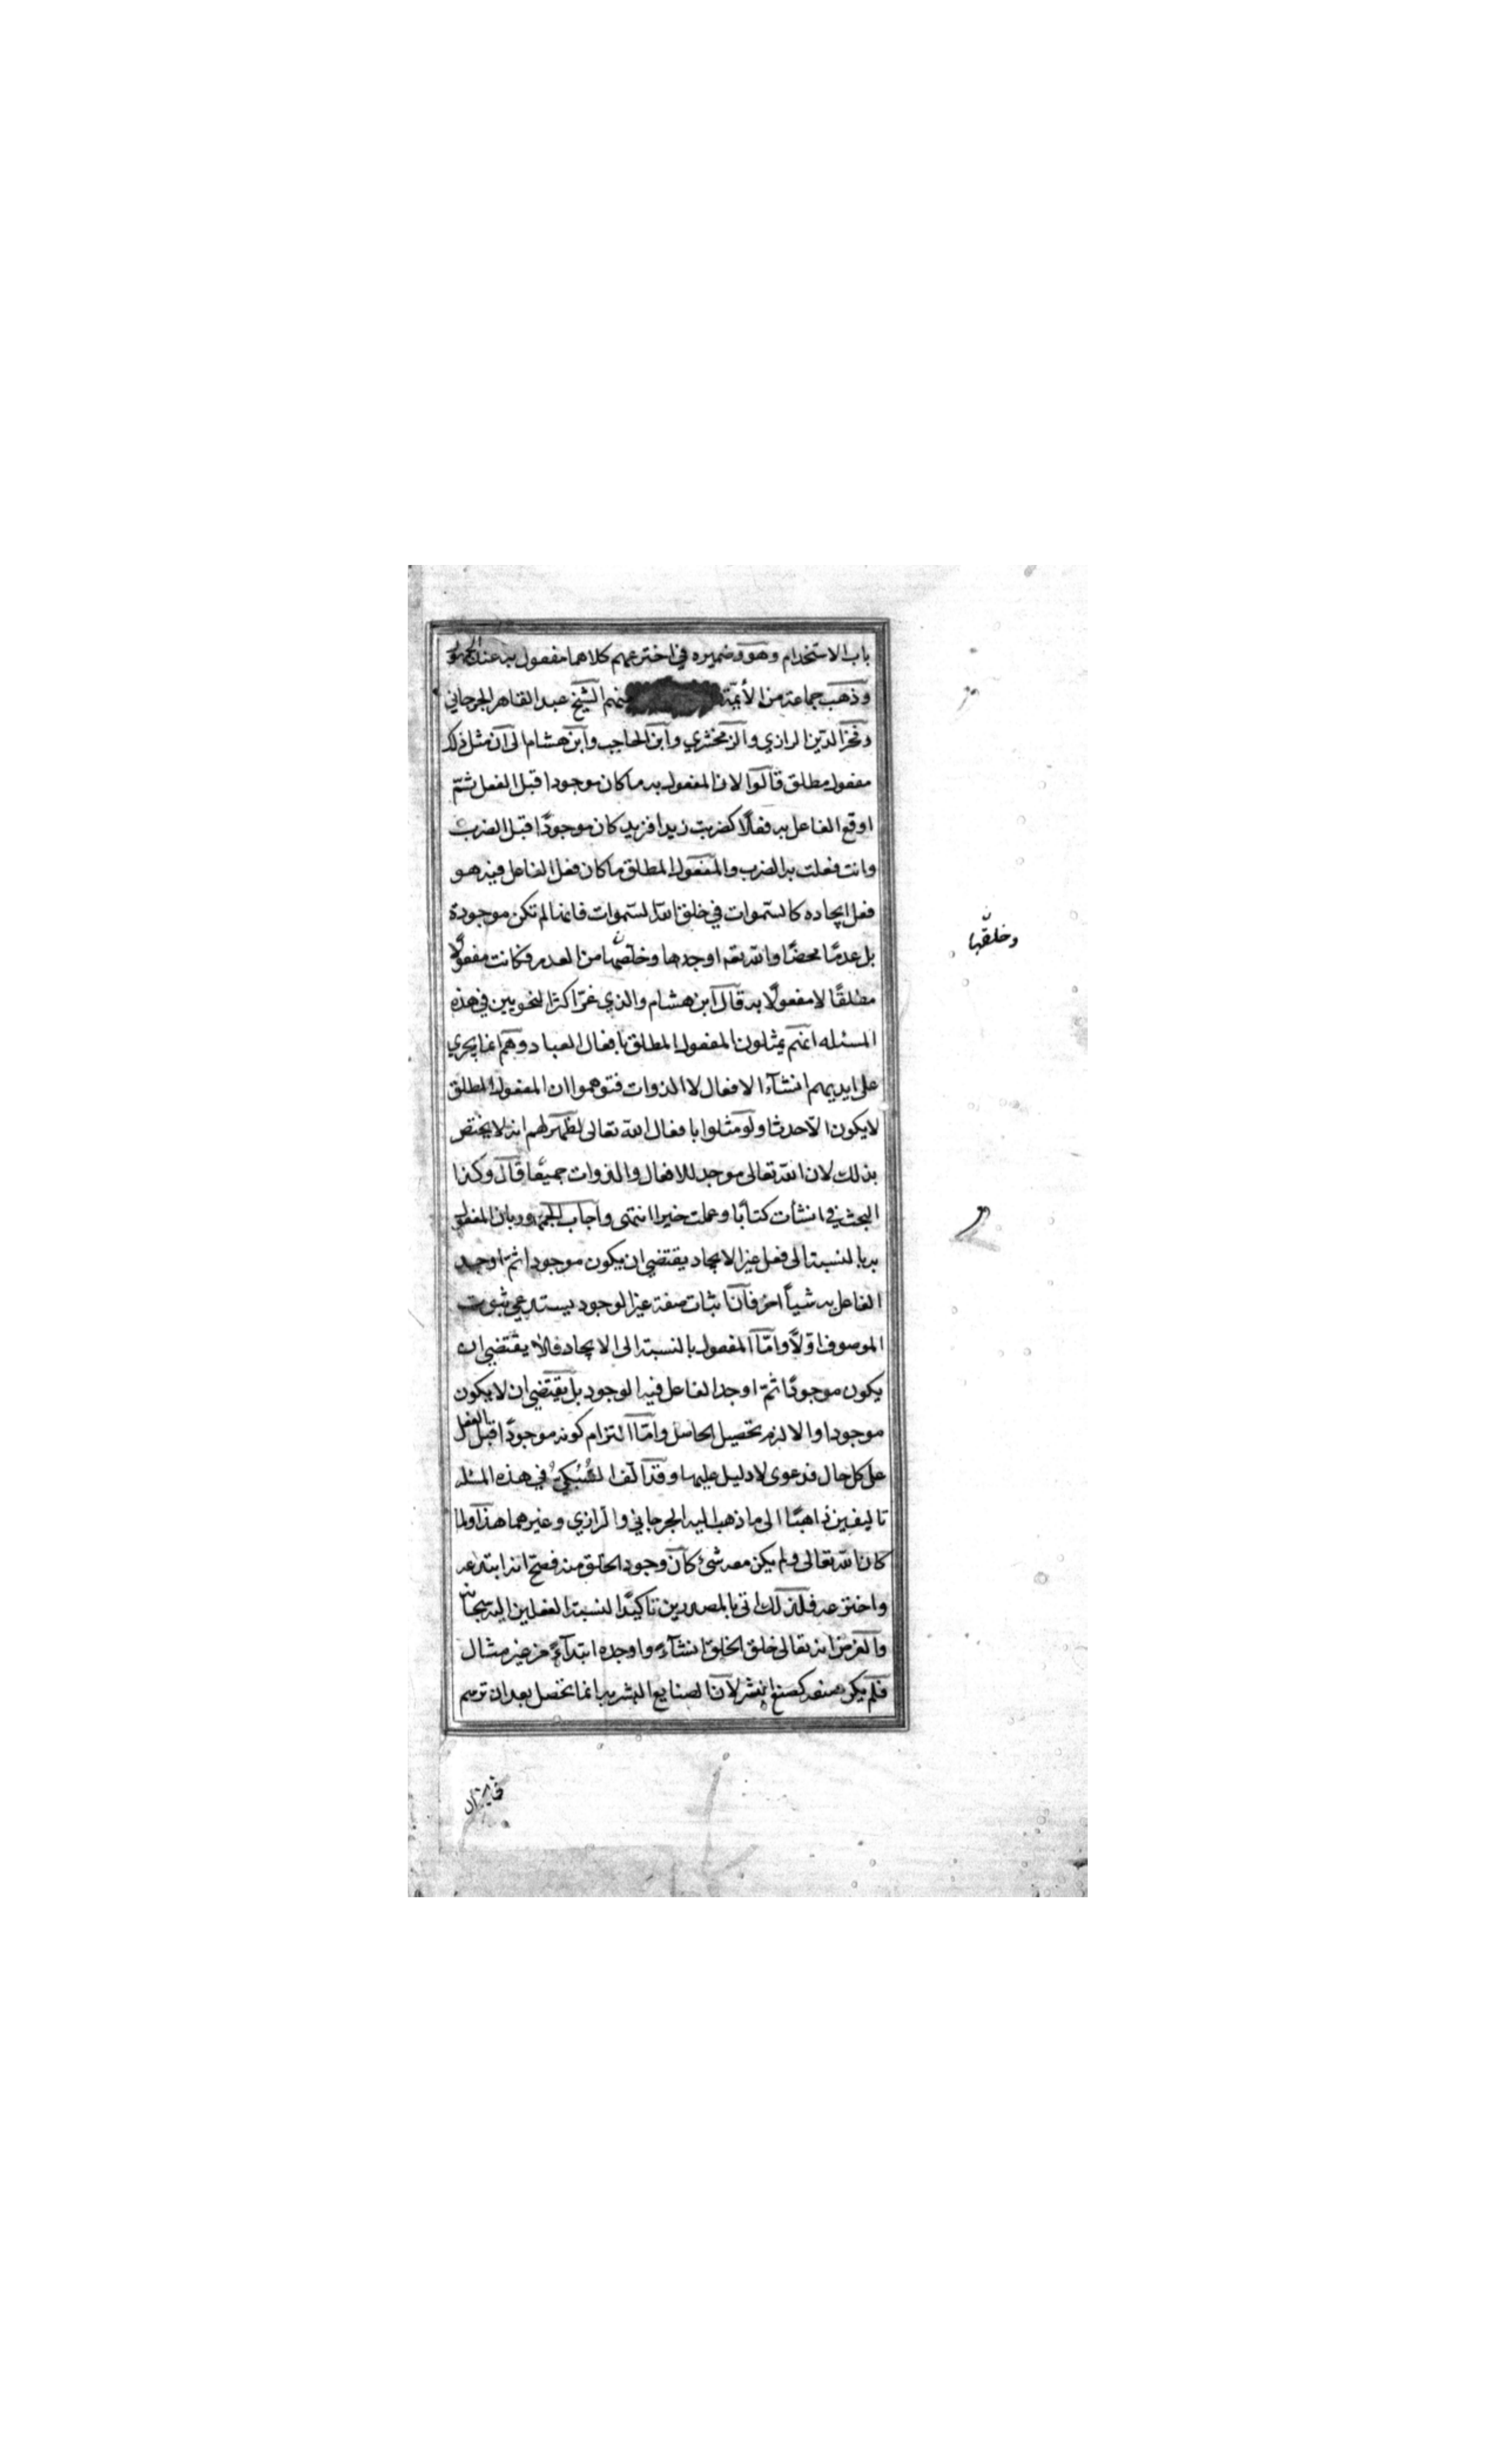 باب الاستخدام وهو وضميره في اخترعهم كلاهما مفعول به عند الجمهور
وذهب جماعة من الأئمة منهم الشيخ عبد القاهر الجرجاني
وفخر الدين الرازي والزمخشري وابن الحاجب وابن هشام الى ان مثل ذلك
مفعول مطلق قالوا لان المفعول به ما كان موجودا قبل الفعل ثم
اوقع الفاعل به فعلًا كضربت زيدا فزيد كان موجودًا قبل الضرب
وانت فعلت به الضرب والمفعول المطلق ما كان فعل الفاعل فيه هو
فعل ايجاده كالسموات في خلق الله السموات فانها لم تكن موجودة
بل عدمًا محضًا والله تعه اوجدها وخلصها من العدم فكانت مفعولًا
وخلقها
مطلقًا لا مفعولًا به قال ابن هشام والذي غرّ اكثر النحويين في هذه
المسئله انهم يمثلون المفعول المطلق بافعال العباد وهم انما يجري
على ايديهم انشاء الافعال لا الذوات فتوهموا ان المفعول المطلق
لا يكون الا حدثا ولو مثلوا بافعال الله تعالى لظهر لهم انه لا يختص
بذلك لان الله تعالى موجد للافعال والذوات جميعًا قال وكذا
البحث في انشأت كتابًا وعملت خيرا انتهى واجاب الجمهور بان المفعول
به بالنسبة الى فعل غير الايجاد يقتضي ان يكون موجودا ثم اوجد
الفاعل به شيأ اخر فان اثبات صفة غير الوجود يستدعي ثبوت
الموصوف اولًا واما المفعول بالنسبة الى الايجاد فلا يقتضي ان
يكون موجودًا ثم اوجد الفاعل فيه الوجود بل يقتضي ان لا يكون
موجودا والا لزم تحصيل الحاصل واما التزام كونه موجودًا قبل الفعل
على كل حال فدعوى لا دليل عليها وقد الف السُّبْكيُّ في هذه المسئله
تاليفين ذاهبًا الى ما ذهب اليه الجرجاني والرازي وغيرهما هذا ولما
كان الله تعالى ولم يكن معه شئ كان وجود الخلق منه فصح انه ابتدعه
واخترعه فلذلك اتى بالمصدرين تاكيدًا لنسبة الفعلين اليه سبحانه
والغرض انه تعالى خلق الخلق انشاءً واوجده ابتداءً من غير مثال
فلم يكن صنعه كصنع البشر لان الصنايع البشريه انما تحصل بعد ان ترتسم